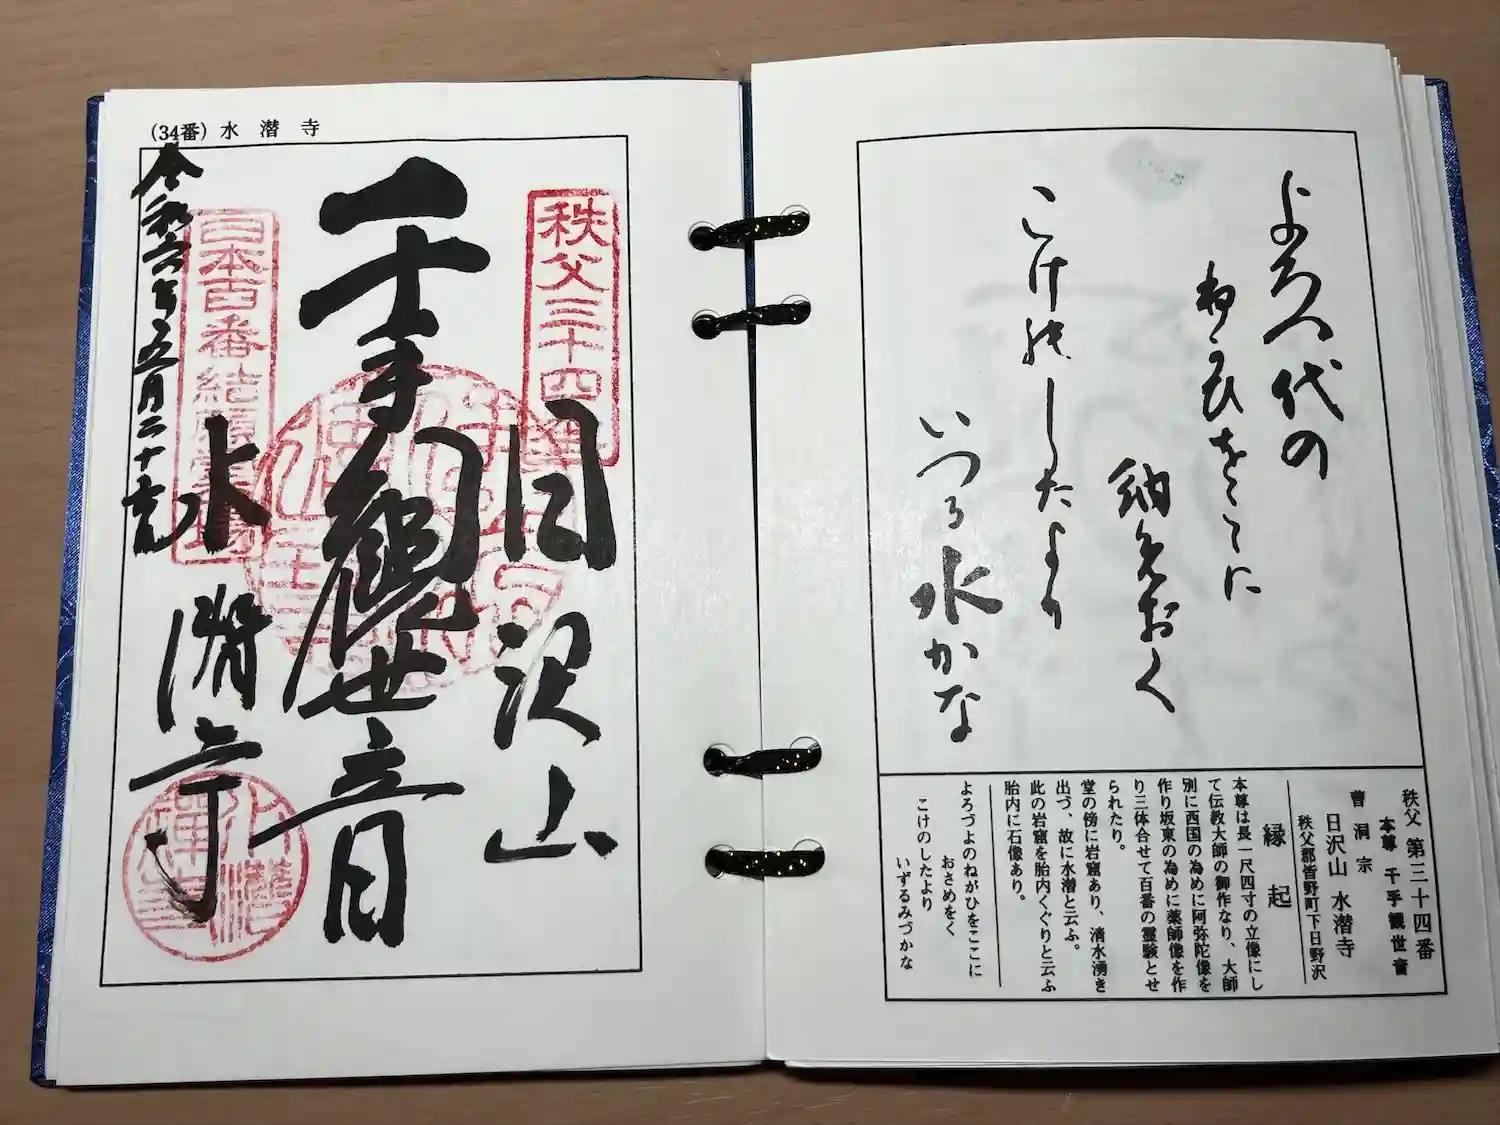 秩父 第三十四番
本尊 千手観世音
曹洞宗
日沢山 水潜寺
秩父郡皆野町下日野沢
縁起
本尊は長一尺四寸の立像にし
て伝教大師の御作なり、大師
別に西国の為めに阿弥陀像を
作り坂東の為めに薬師像を作
り三体合せて百番の霊験とせ
られたり。
堂の傍に岩窟あり、清水湧き
出づ、故に水潜と云ふ。
此の岩窟を胎内くぐりと云ふ
胎内に石像あり。
よろづよのねがひをここに
おさめをく
こけのしたより
いずるみづかな
よろつ代の
ねかひをこゝに
納めおく
こけのしたより
いつる水かな
(34番) 水潜寺
秩父三十四番
日沢山
千手観世音
水潜寺
日本百番結願
令和六年五月二十